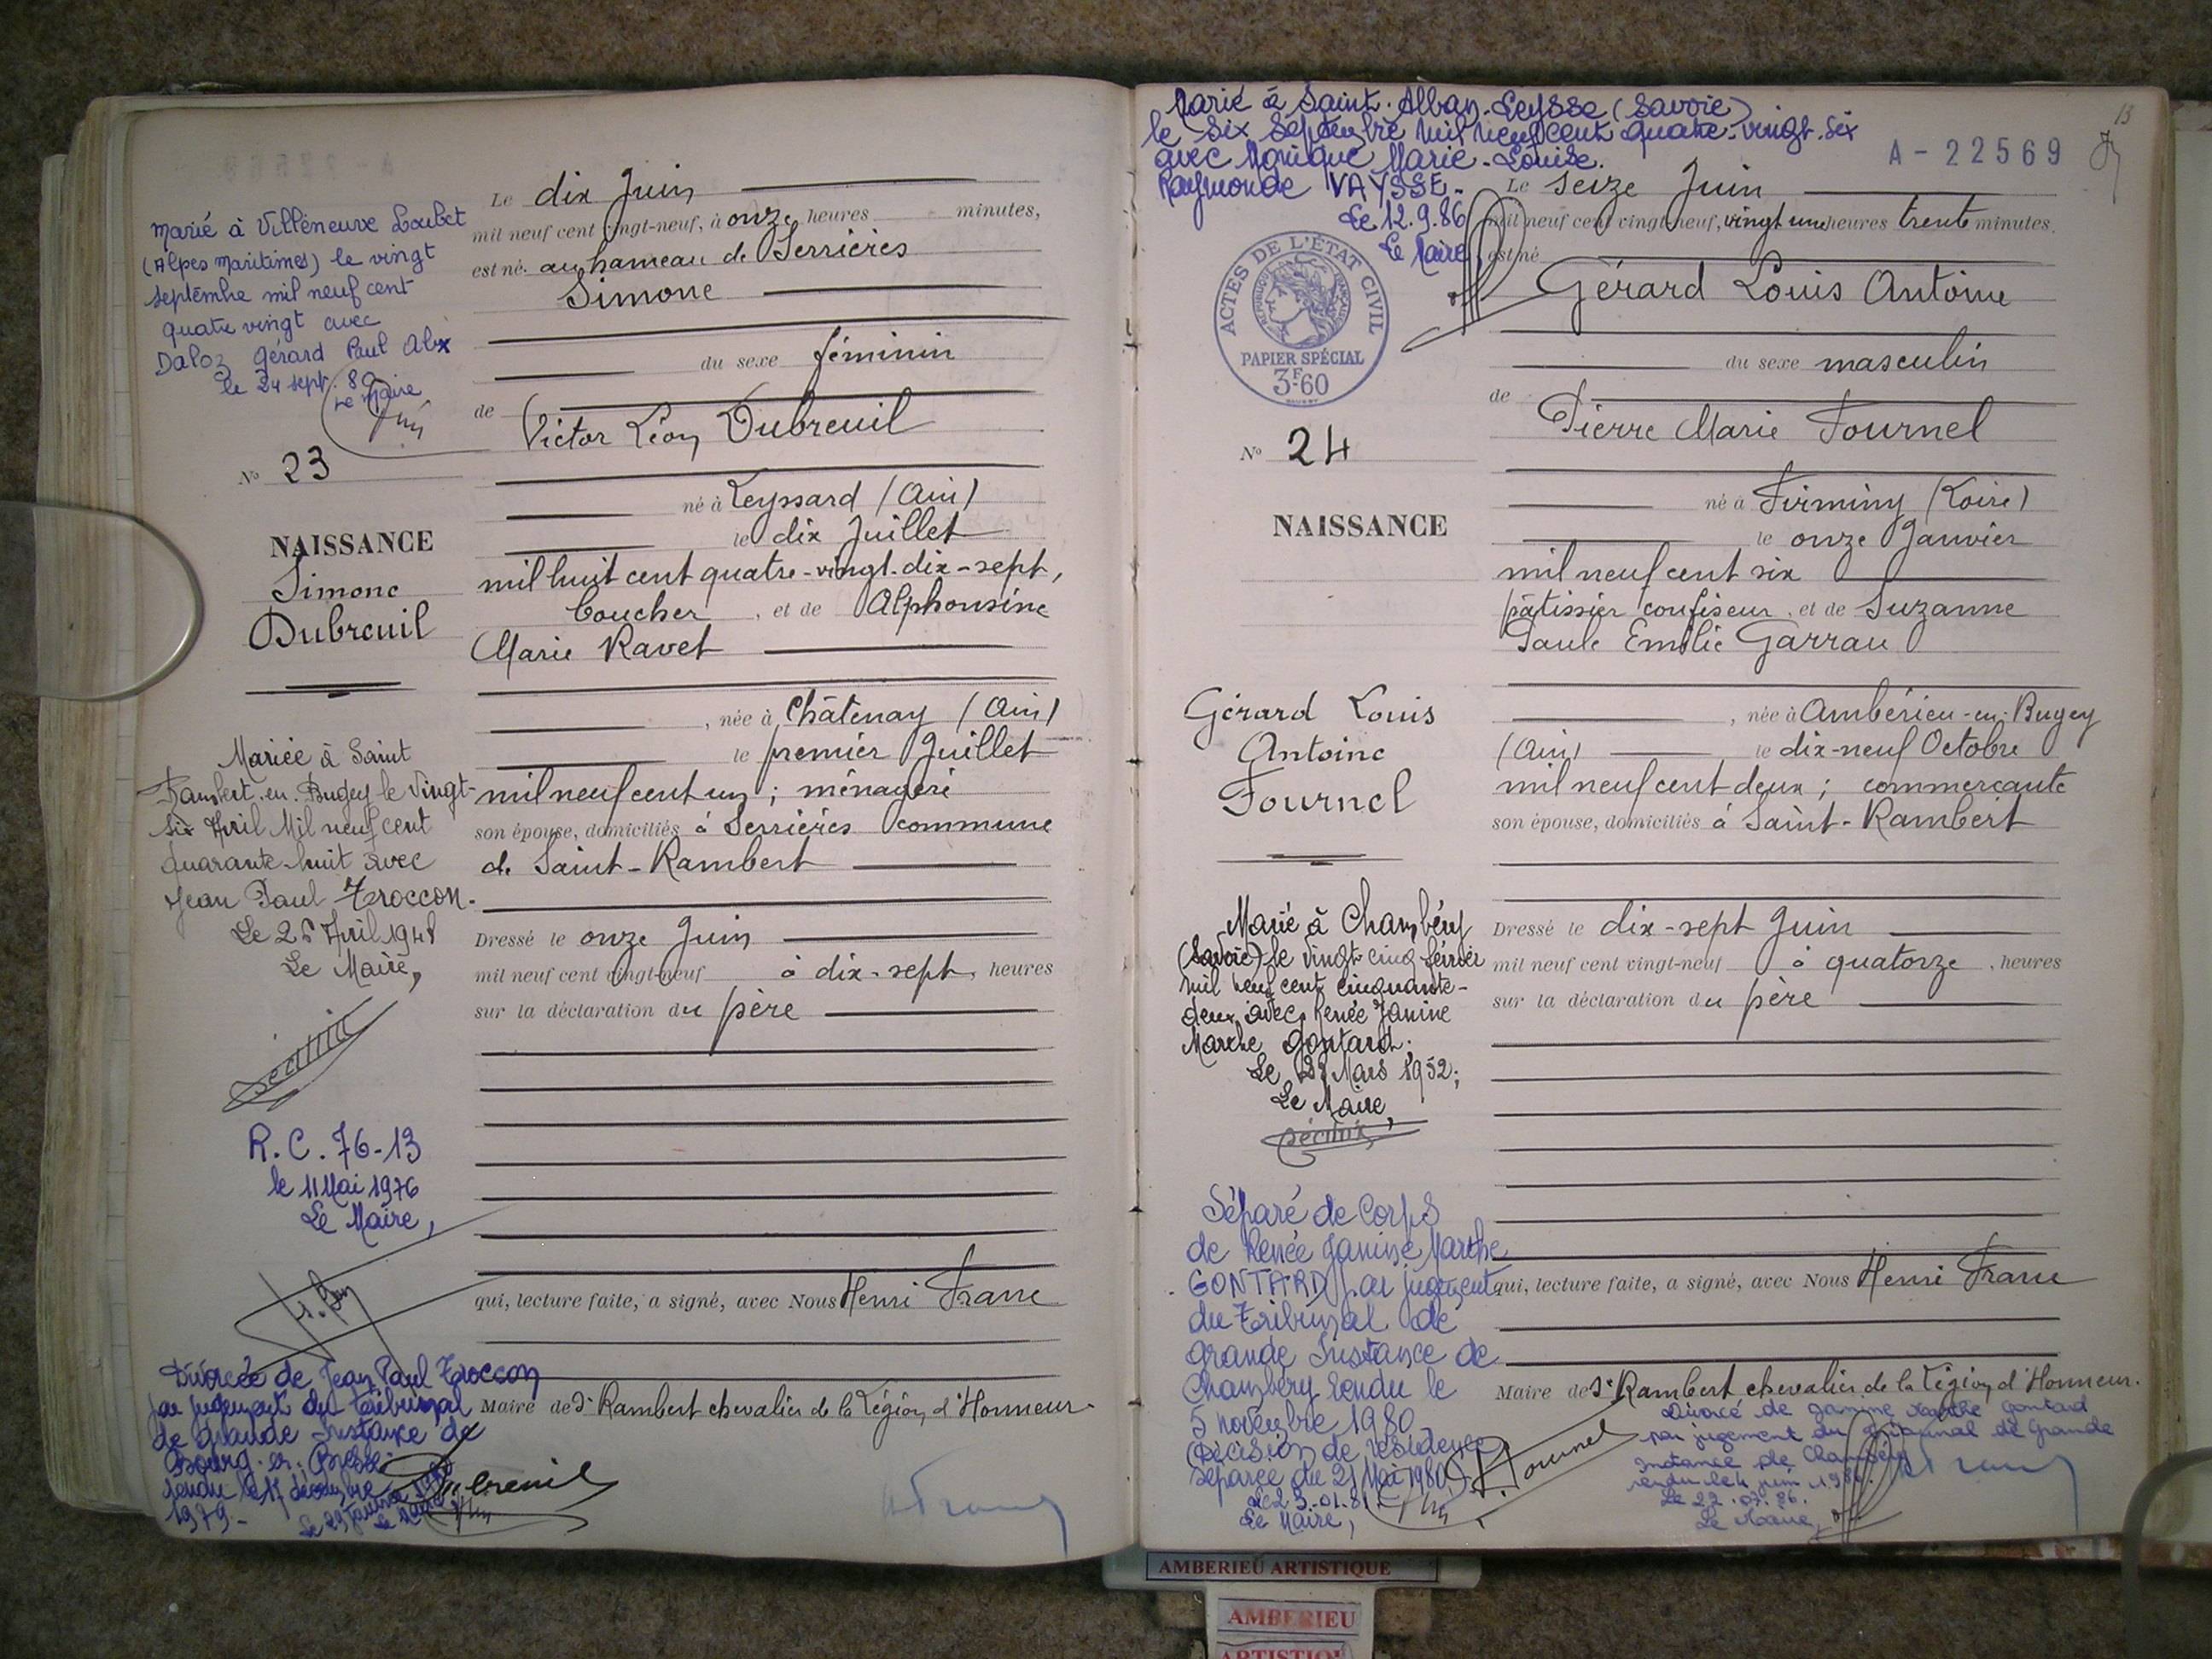 marié à Villeneuve Loubet
(Alpes Maritimes) le vingt
septembre mil neuf cent
quatre vingt avec
Daloz Gérard Paul Alex
le 24 sept. 80
Le Maire
No 23
NAISSANCE
Simone
Dubreuil
Mariée à Saint
Rambert-en-Bugey le vingt-
six Avril Mil neuf cent
quarante-huit avec
Jean Paul Troccon.
Le 26 Avril 1948
Le Maire,
R.C. 76-13
le 11 Mai 1976
Le Maire,
Divorcée de Jean Paul Troccon
par jugement du tribunal
de Grande Instance de
Bourg-en-Bresse
rendu le décembre
1979-
Le Maire
Le dix Juin
mil neuf cent vingt-neuf, à onze heures minutes,
est né au hameau de Serrières
Simone
du sexe féminin
de Victor Léon Dubreuil
né à Leyssard (Ain)
le dix Juillet
mil huit cent quatre-vingt-dix-sept,
Coucher, et de Alphonsine
Marie Ravet
, née à Châtenay (Ain)
le premier Juillet
mil neuf cent un ; ménagère
son épouse, domiciliés à Serrières commune
de Saint-Rambert
Dressé le onze Juin
mil neuf cent vingt-neuf à dix-sept, heures
sur la déclaration du père
qui, lecture faite, a signé, avec Nous Henri Franc
Maire de St Rambert chevalier de la Légion d'Honneur.
Dubreuil
13
A-22569
Marié à Saint-Alban-Leysse (Savoie)
le six Septembre mil neuf cent quatre-vingt-six
avec Monique Marie-Louise
Raymonde VAYSSE-
Le 12.9.86
Le Maire
ACTES DE L'ÉTAT CIVIL
PAPIER SPÉCIAL
3F60
No 24
NAISSANCE
Gérard Louis
Antoine
Fournel
Marié à Chambéry
(Savoie) le vingt-cinq février
mil neuf cent cinquante-
deux avec Renée Janine
Marthe Gontard.
Le Mars 1952;
Le Maire,
Séparé de Corps
de Renée Janine Marthe
GONTARD par jugement
du Tribunal de
Grande Instance de
Chambéry rendu le
5 novembre 1980
(Décision de résidence
séparée du 21 Mai 1980)
Le 23-01-81
Le Maire,
Le seize Juin
mil neuf cent vingt-neuf, vingt une heures trente minutes.
est né
Gérard Louis Antoine
du sexe masculin
de Pierre Marie Fournel
né à Firminy (Loire)
le onze Janvier
mil neuf cent six
pâtissier confiseur, et de Suzanne
Paule Emilie Garrau
, née à Ambérieu-en-Bugey
(Ain) le dix-neuf Octobre
mil neuf cent deux ; commerçante
son épouse, domiciliés à Saint-Rambert
Dressé le dix-sept Juin
mil neuf cent vingt-neuf à quatorze, heures
sur la déclaration du père
qui, lecture faite, a signé, avec Nous Henri Franc
Maire de St Rambert chevalier de la Légion d'Honneur.
Divorcé de Janine Marthe Gontard
par jugement du tribunal de Grande
Instance de Chambéry
rendu le 4 juin 1986.
Le 22.07.86.
Le Maire,
Fournel
AMBERIEU ARTISTIQUE
AMBERIEU
ARTISTIQUE